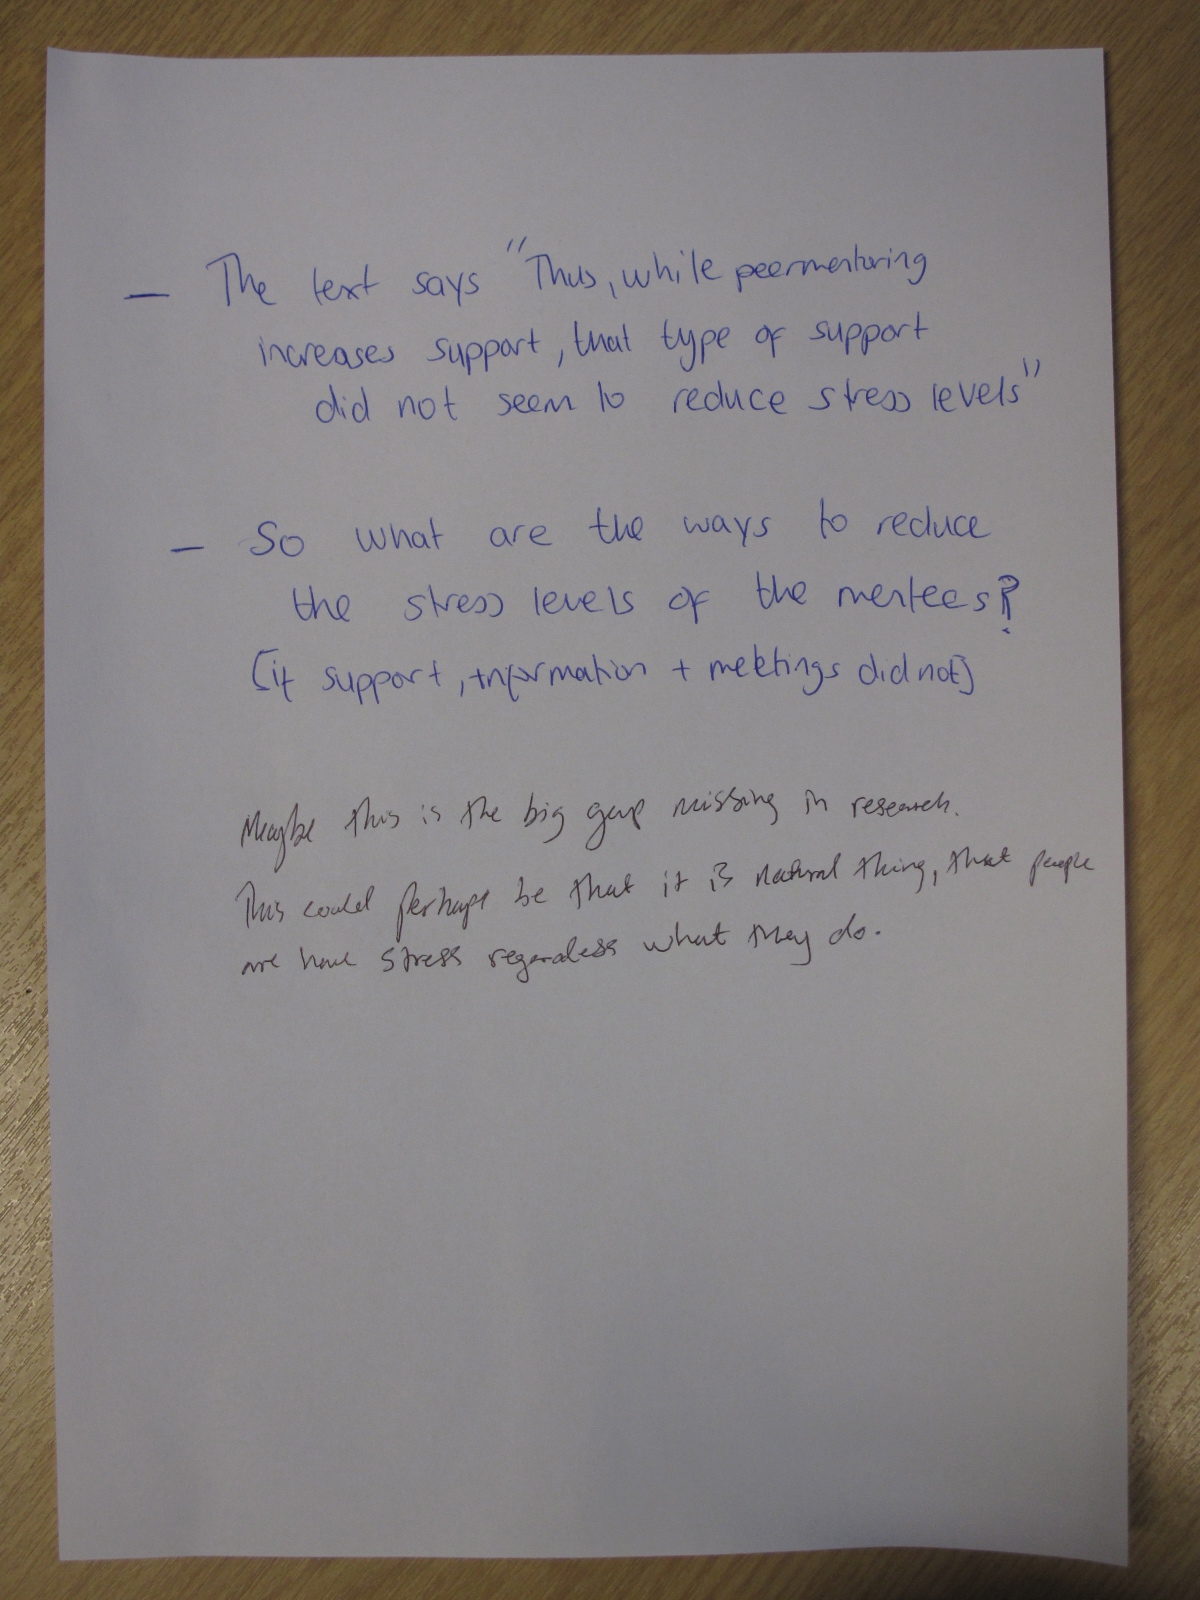 — The text says "Thus, while peermentoring
increases support, that type of support
did not seem to reduce stress levels"
— So what are the ways to reduce
the stress levels of the mentees?
(if support, information + meetings did not)
Maybe this is the big gap missing in research.
This could perhaps be that it is natural thing, that people
are have stress regardless what they do.